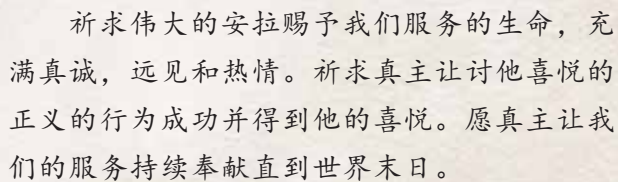 祈求伟大的安拉赐予我们服务的生命，充
满真诚，远见和热情。祈求真主让讨他喜悦的
正义的行为成功并得到他的喜悦。愿真主让我
们的服务持续奉献直到世界末日。